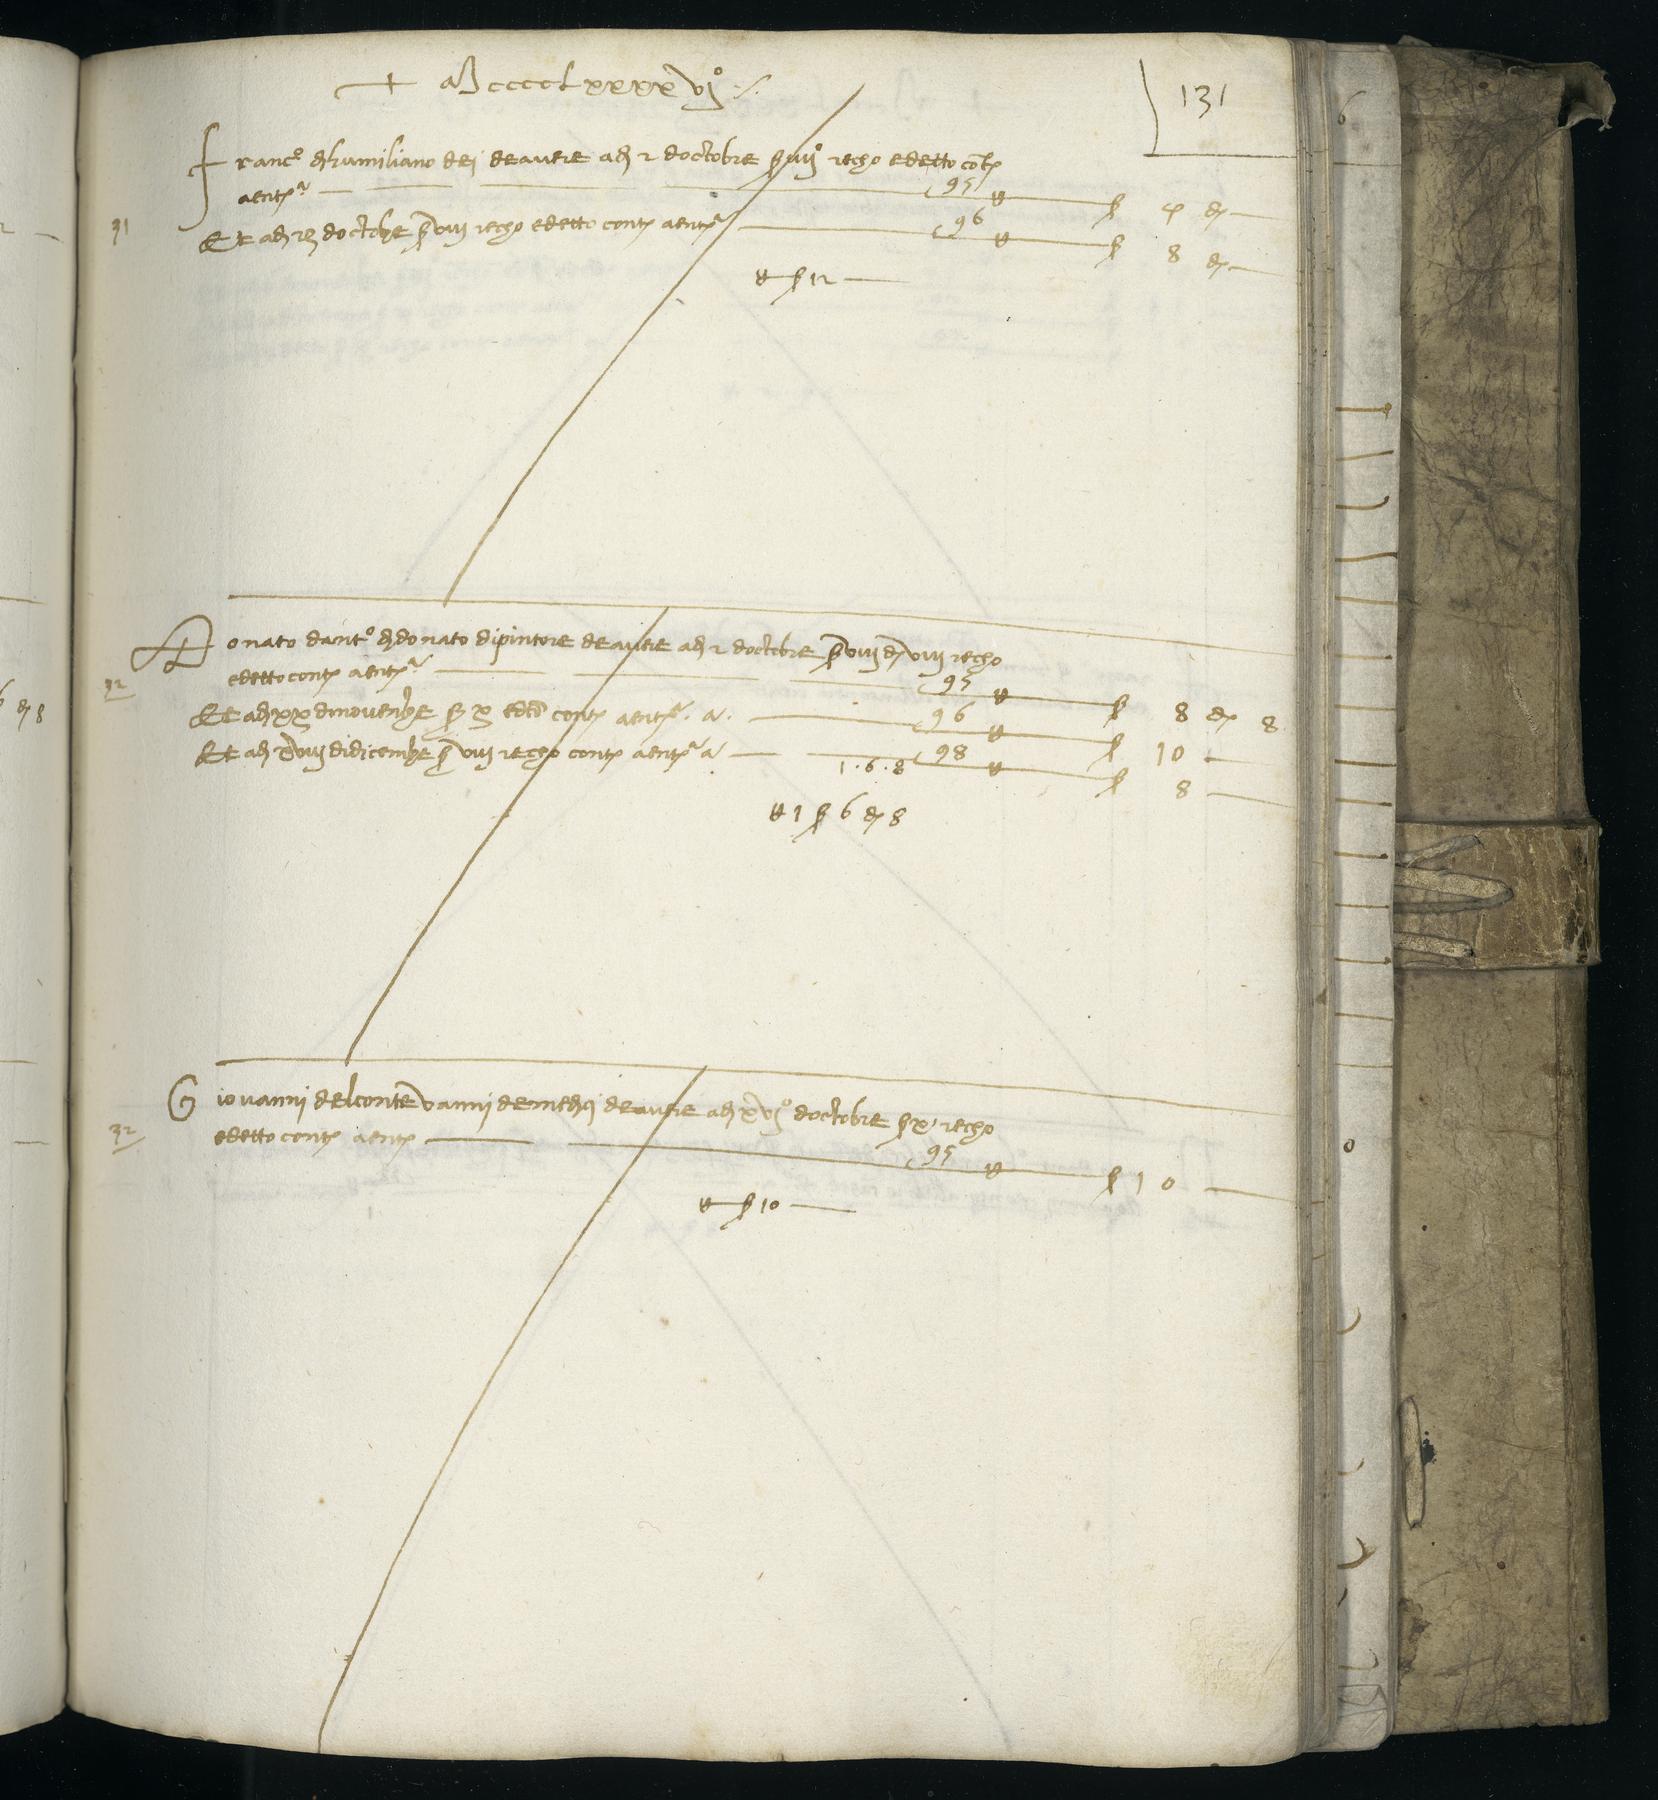 + Mccccclxxxxvi°
131
Franc° di humiliano dej de avere adi 2 doctobre ß iiij° recho e detto contj
a entrª 95 ₶ ß 4 d
91
E e adi 23 doctobre ß viij recho e detto contj a entrª 96 ₶ ß 8 d
₶ ß 12
Donato dant° di donato dipintore de avere adi 2 doctobre ß viij d viij recho
e detto contj a entrª 95 ₶ ß 8 d 8
92
E e adi xx di novenbre ß x e detto contj a entrª a 96 ₶ ß 10
E e adi xviiij di dicembre ß viij recho contj a entrª a 98 ₶ ß 8
1.6.8
₶ 1 ß 6 d 8
Giovanni del conte vanni de de avere adi xvj° doctobre ß x recho
e detto contj a entrª 95 ₶ ß 10
32
₶ ß 10